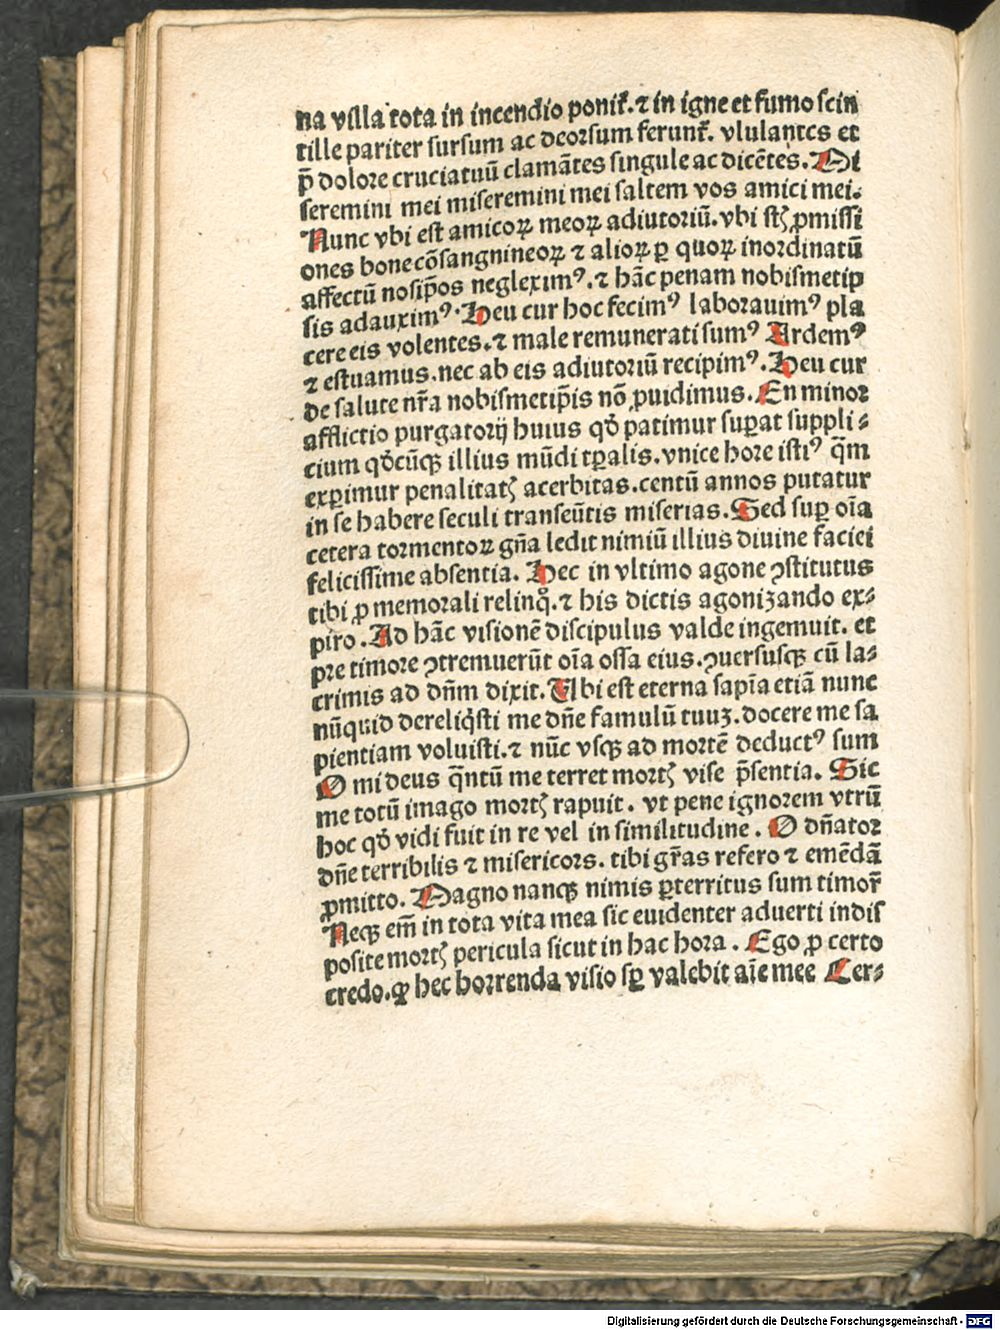 na villa tota in incendio ponit᷑. ⁊ in igne et fumo ſcin
tille pariter ſurſum ac deorſum ferunt᷑. vlulantes et
p̄ dolore cruciatuū clamātes ſingule ac dicētes. Mi
ſeremini mei miſeremini mei ſaltem vos amici mei.
Nunc vbi eſt amicoꝝ meoꝝ adiutoriū. vbi ſūt ꝓmiſſi
ones bone cōſangnineoꝝ ⁊ alioꝝ ꝑ quoꝝ inordinatū
affectū nosip̄os neglexim⁹. ⁊ hāc penam nobiſmetip
ſis adauxim⁹. Heu cur hoc fecim⁹ laborauim⁹ pla
cere eis volentes. ⁊ male remunerati ſum⁹ Ardem⁹
⁊ eſtuamus. nec ab eis adiutoriū recipim⁹. Heu cur
de ſalute nr̄a nobiſmetip̄is nō ꝓuidimus. En minor
afflictio purgatorij huius qđ patimur ſuꝑat ſuppli⸗
cium qđcūqꝫ illius mūdi tꝑalis. vnice hore iſti⁹ q̄m
exꝑimur penalitatꝭ acerbitas. centū annos putatur
in ſe habere ſeculi tranſeūtis miſerias. Sed ſuꝑ oīa
cetera tormentoꝝ gn̄a ledit nimiū illius diuine faciei
feliciſſime abſentia. Hec in vltimo agone ꝯſtitutus
tibi ꝓ memorali relinqͦ. ⁊ his dictis agonizando ex⸗
piro. Ad hāc viſionē diſcipulus valde ingemuit. et
pre timore ꝯtremuerūt oīa oſſa eius. ꝯuerſuſqꝫ cū la⸗
crimis ad dn̄m dixit. Ubi eſt eterna ſapīa etiā nunc
nūquid dereliqͥſti me dn̄e famulū tuuꝫ. docere me ſa
pientiam voluiſti. ⁊ nūc vſqꝫ ad mortē deduct⁹ ſum
O mi deus q̄ntū me terret mortꝭ viſe p̄ſentia. Sic
me totū imago mortꝭ rapuit. vt pene ignorem vtrū
hoc qđ vidi fuit in re vel in ſimilitudine. O dn̄ator
dn̄e terribilis ⁊ miſericors. tibi gr̄as refero ⁊ emēdā
ꝓmitto. Magno nanqꝫ nimis ꝑterritus ſum timor̄
Neqꝫ em̄ in tota vita mea ſic euidenter aduerti indiſ
poſite mortꝭ pericula ſicut in hac hora. Ego ꝓ certo
credo. ꝙ hec horrenda viſio ſꝑ valebit aīe mee Cer⸗
Digitalisierung gefördert durch die Deutsche Forschungsgemeinschaft - DFG